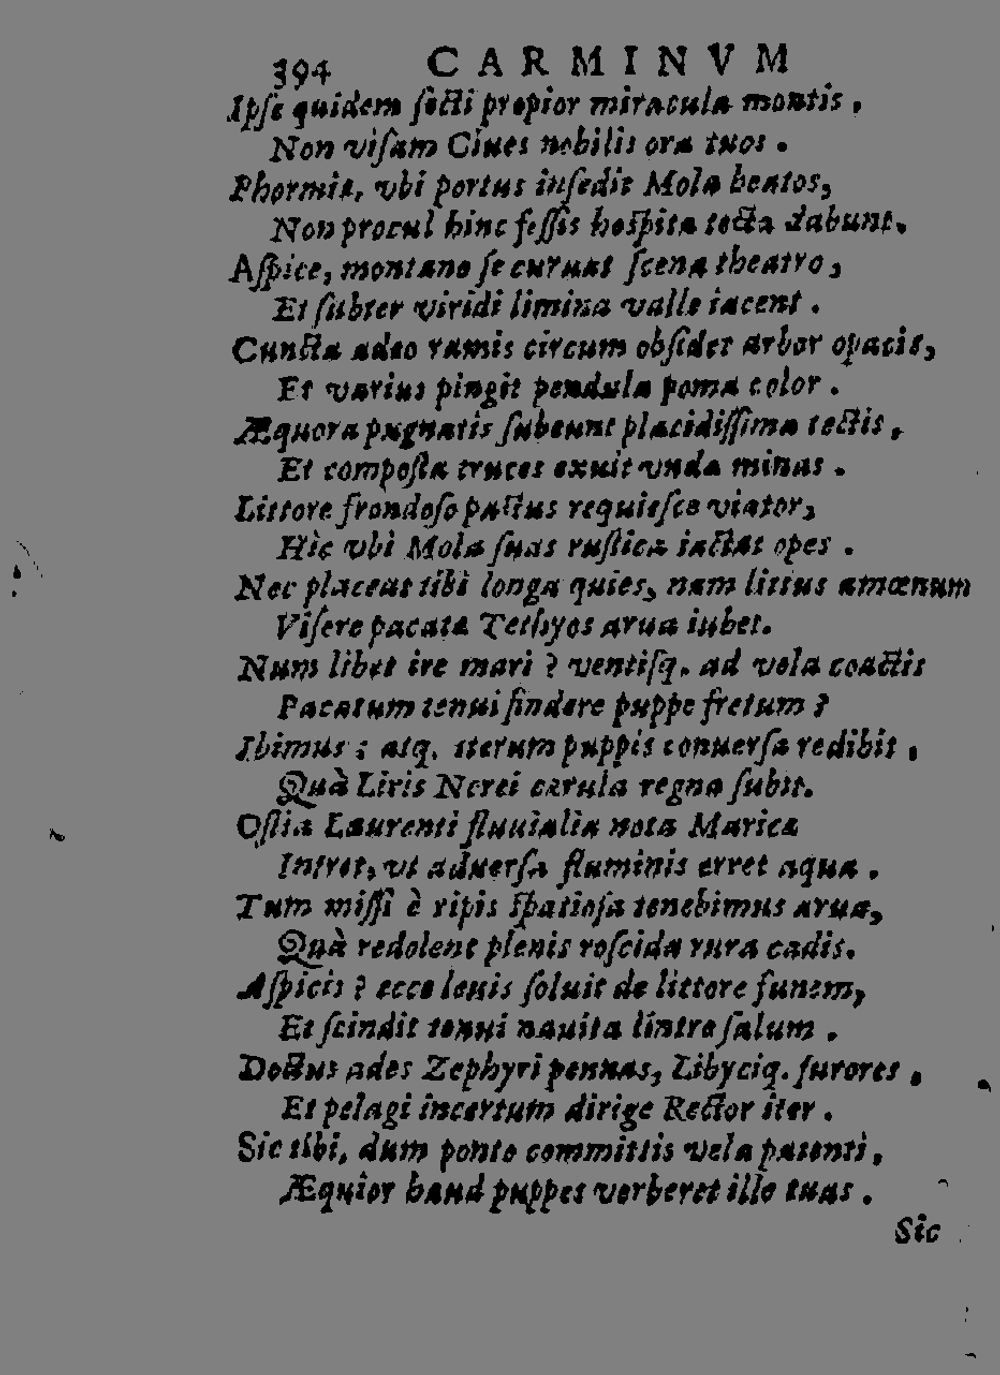 394 CARMINVM
Ipſe quidem ſecti propior miracula montis,
Non viſam Ciues nobilis ora tuos.
Phormis, vbi portus inſedit Mola beatos,
Non procul hinc feſſis hoſpita tecta dabunt.
Aſpice, montano ſe curuat ſcena theatro,
Et ſubter viridi limina valle iacent.
Cuncta adeo ramis circum obſidet arbor opacis,
Et varius pingit pendula poma color.
Æquora pugnatis ſubeunt placidiſſima tectis,
Et compoſta truces exuit vnda minas.
Littore frondoſo pactus requieſce viator,
Hic vbi Mola ſuas ruſtica iactat opes.
Nec placeat tibi longa quies, nam littus amœnum
Viſere pacata Tethyos arua iubet.
Num libet ire mari? ventiſq. ad vela coactis
Pacatum tenui findere puppe fretum?
Ibimus: atq. iterum puppis conuerſa redibit,
Quà Liris Nerei cærula regna ſubit.
Oſtia Laurenti fluuialia nota Marica
Intret, vt aduerſa fluminis erret aqua.
Tum miſſi è ripis ſpatioſa tenebimus arua,
Quà redolent plenis roſcida rura cadis.
Aſpicis? ecce leuis ſoluit de littore funem,
Et ſcindit tenui nauita lintre ſalum.
Doctus ades Zephyri pennas, Libyciq. furores,
Et pelagi incertum dirige Rector iter.
Sic tibi, dum ponto committis vela patenti,
Æquior haud puppes verberet ille tuas.
Sic